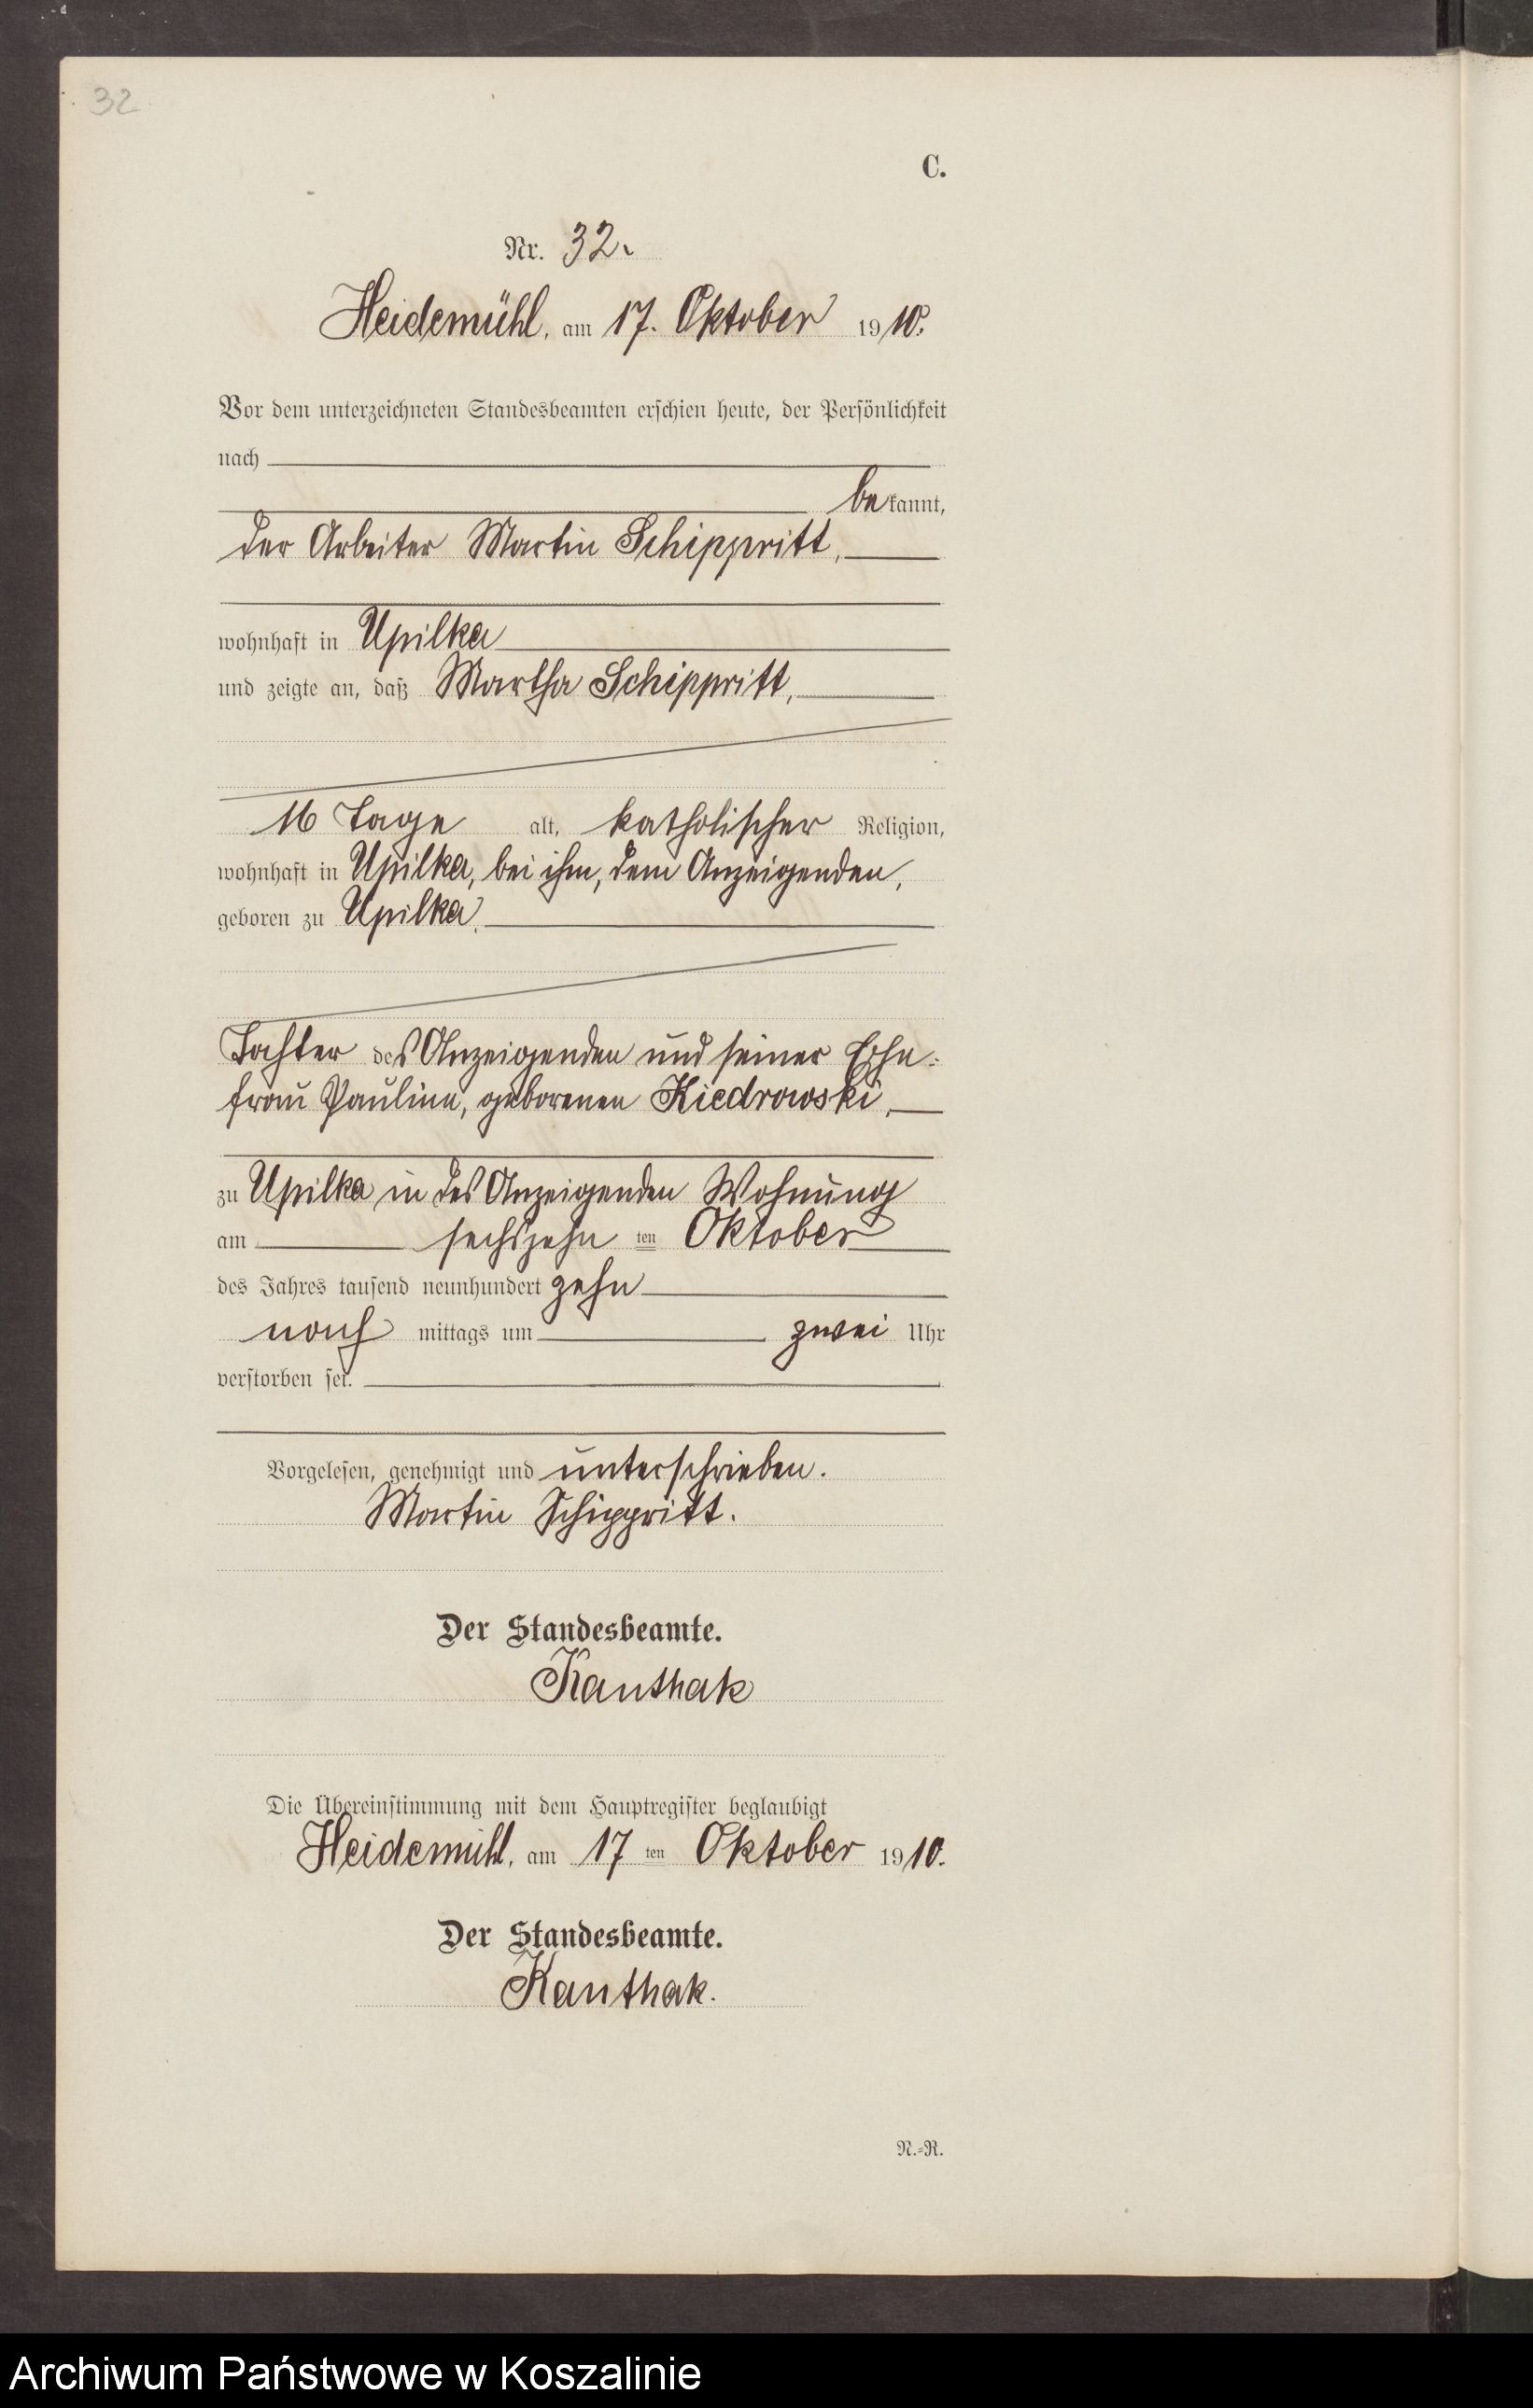 32
C.
Nr. 32.
Heidemühl, am 17. Oktober 1910.
Vor dem unterzeichneten Standesbeamten erschien heute, der Persönlichkeit
nach
bekannt,
der Arbeiter Martin Schippritt,
wohnhaft in Upilka
und zeigte an, daß Martha Schippritt,
16 Tage alt, katholischer Religion,
wohnhaft in Upilka, bei ihm, dem Anzeigenden,
geboren zu Upilka,
Tochter des Anzeigenden und seiner Ehe-
frau Pauline, geborenen Kiedrowski,
zu Upilka in des Anzeigenden Wohnung
am sechszehn ten Oktober
des Jahres tausend neunhundert zehn
nach mittags um zwei Uhr
verstorben sei.
Vorgelesen, genehmigt und unterschrieben.
Martin Schippritt.
Der Standesbeamte.
Kanthak
Die Übereinstimmung mit dem Hauptregister beglaubigt
Heidemühl, am 17 ten Oktober 1910.
Der Standesbeamte.
Kanthak.
N.=R.
Archiwum Państwowe w Koszalinie